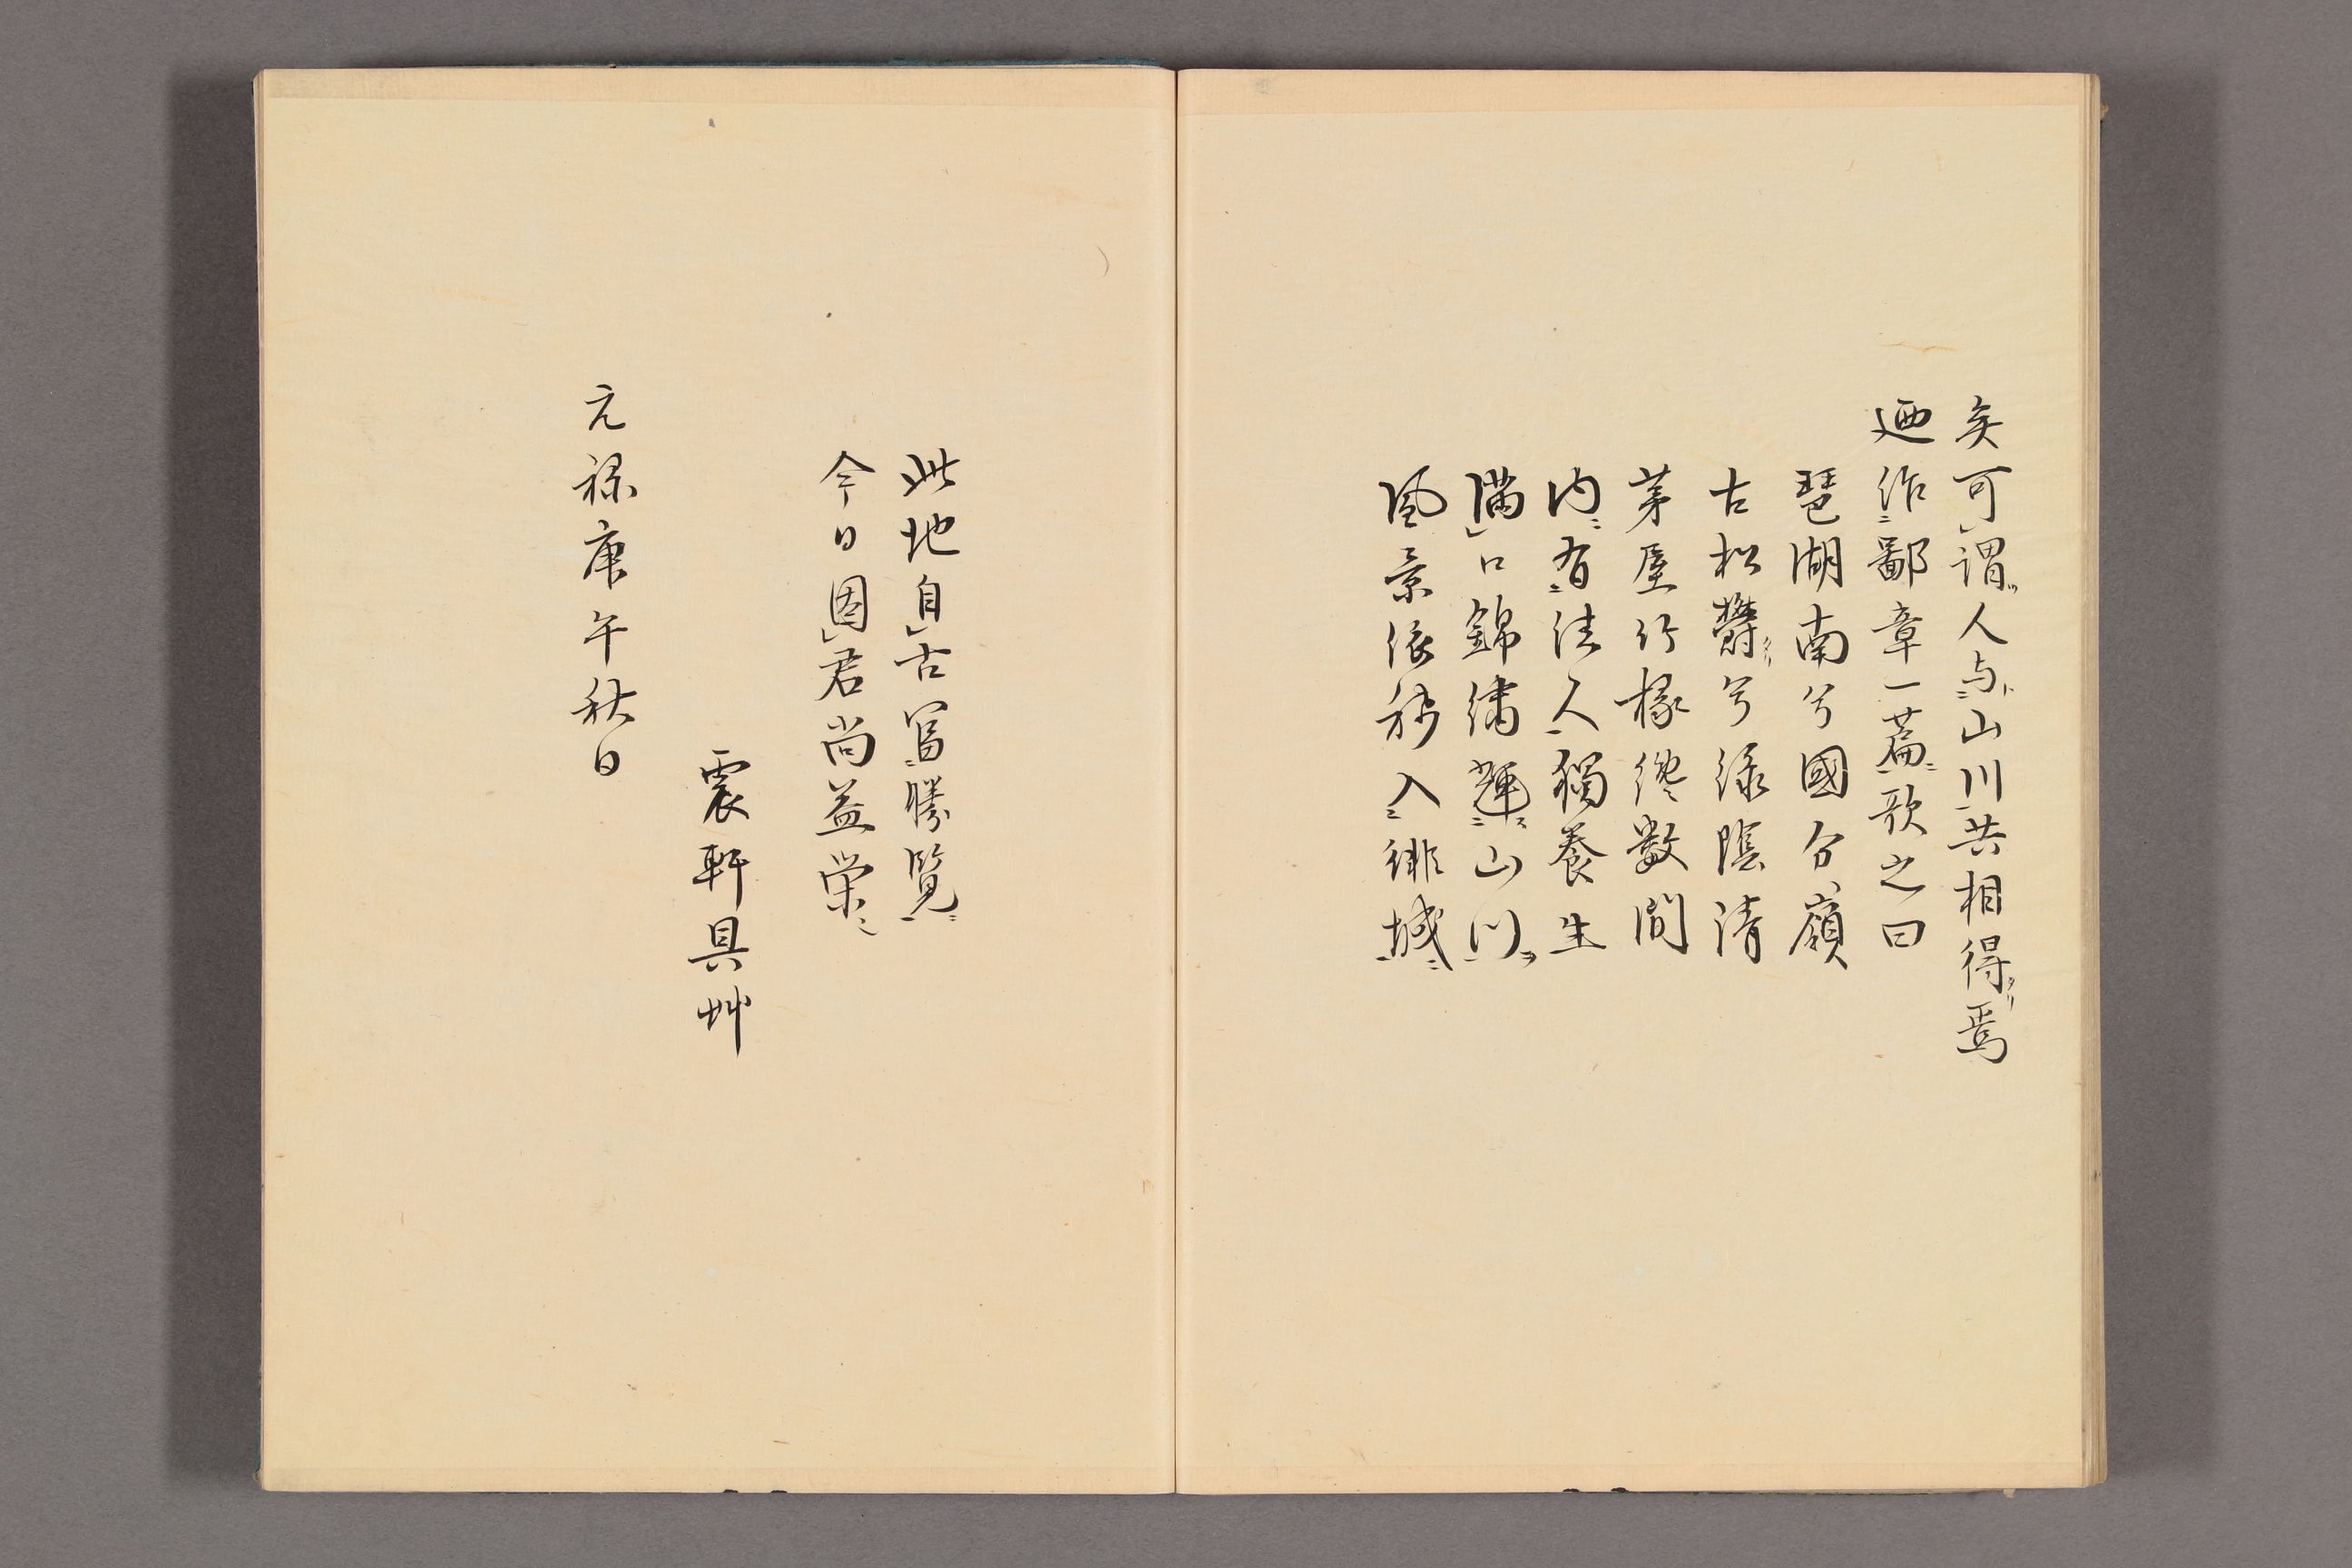 矣可謂人与山川共相得焉
迺作鄙章一篇歌之曰
琶湖南兮國分嶺
古松欝兮緑陰清
茅屋竹椽纔數間
内有佳人獨養生
満口錦繍輝山川
風景依稀入誹城
此地自古富勝覽
今日因君尚益栄
震軒具艸
元禄庚午秋日